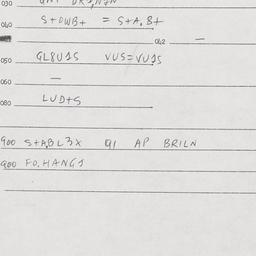 030
040 S+DWB+ = S+A,B+
042 —
050 GL8U1S VUS=VU1S
060 —
080 LUD+S
900 S+A,BL3X 91 AP BRILN
900 FO.HANGS